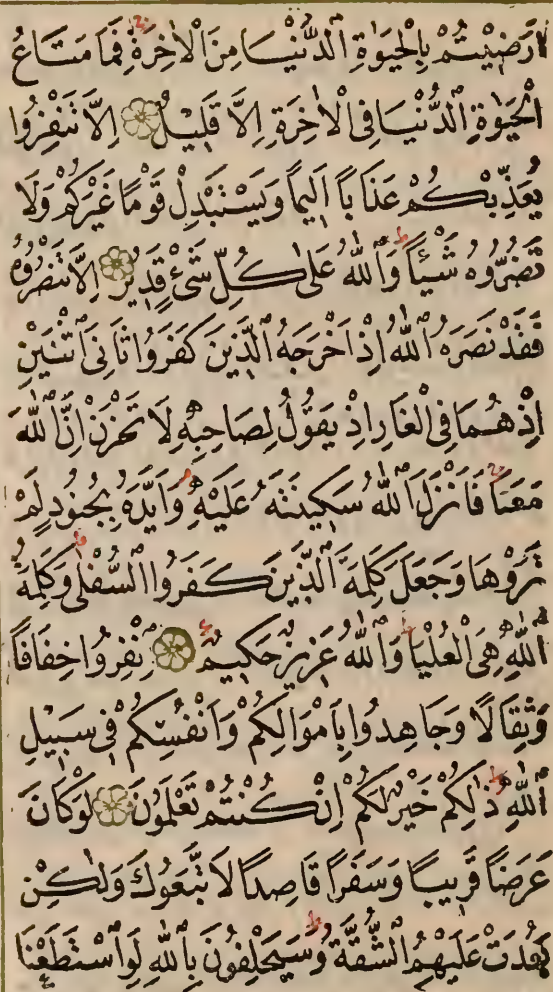 اَرَضِيْتُمْ بِالْحَيٰوةِ الدُّنْيَا مِنَ الْاٰخِرَةِ فَمَا مَتَاعُ
الْحَيٰوةِ الدُّنْيَا فِى الْاٰخِرَةِ اِلَّا قَلِيْلٌ اِلَّا تَنْفِرُوا
يُعَذِّبْكُمْ عَذَابًا اَلِيمًا وَيَسْتَبْدِلْ قَوْمًا غَيْرَكُمْ وَلَا
تَضُرُّوهُ شَيْـًٔا وَاللّٰهُ عَلٰى كُلِّ شَىْءٍ قَدِيْرٌ اِلَّا تَنْصُرُوهُ
فَقَدْ نَصَرَهُ اللّٰهُ اِذْ اَخْرَجَهُ الَّذِينَ كَفَرُوا ثَانِىَ اثْنَيْنِ
اِذْ هُمَا فِى الْغَارِ اِذْ يَقُوْلُ لِصَاحِبِهٖ لَا تَحْزَنْ اِنَّ اللّٰهَ
مَعَنَا فَاَنْزَلَ اللّٰهُ سَكِينَتَهُ عَلَيْهِ وَاَيَّدَهُ بِجُنُودٍ لَمْ
تَرَوْهَا وَجَعَلَ كَلِمَةَ الَّذِينَ كَفَرُوا السُّفْلٰى وَكَلِمَةُ
اللّٰهِ هِىَ الْعُلْيَا وَاللّٰهُ عَزِيزٌ حَكِيمٌ اِنْفِرُوا خِفَافًا
وَثِقَالًا وَجَاهِدُوا بِاَمْوَالِكُمْ وَاَنْفُسِكُمْ فِى سَبِيْلِ
اللّٰهِ ذٰلِكُمْ خَيْرٌ لَكُمْ اِنْ كُنْتُمْ تَعْلَمُوْنَ لَوْ كَانَ
عَرَضًا قَرِيبًا وَسَفَرًا قَاصِدًا لَاتَّبَعُوكَ وَلٰكِنْ
بَعُدَتْ عَلَيْهِمُ الشُّقَّةُ وَسَيَحْلِفُونَ بِاللّٰهِ لَوِ اسْتَطَعْنَا